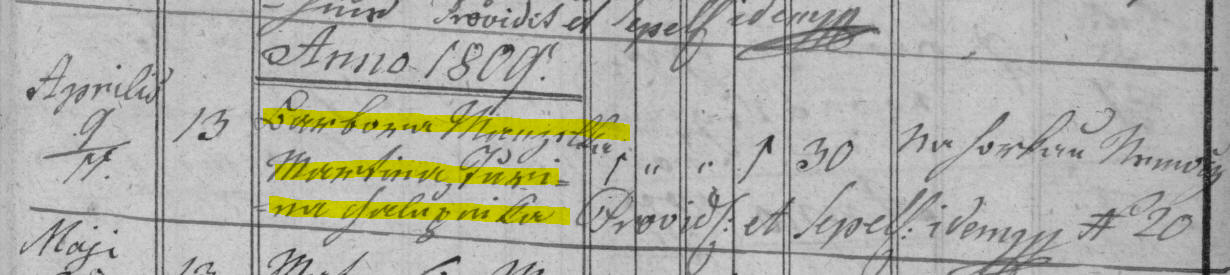 Providit et sepelf: idemqq
Anno 1809.
Aprilis
9
11.
13
Barbora Manzelka
Martina Turi=
=na Chalupnika
1 " " 1 30
Na horkau Nemoc
Provid: et sepelf: idemqq # 20
Maji
13